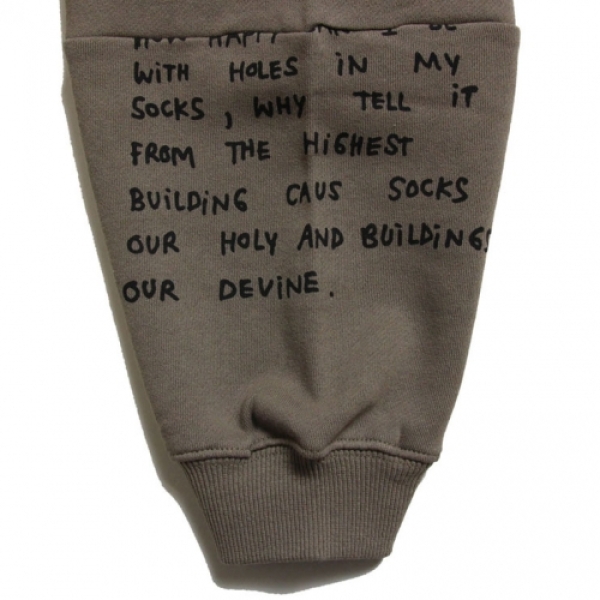 HOW HAPPY I BE
WiTH HOLES iN MY
SOCKS, WHY TELL iT
FROM THE HiGHEST
BUiLDiNG CAUS SOCKS
OUR HOLY AND BUiLDiNGS
OUR DEViNE.